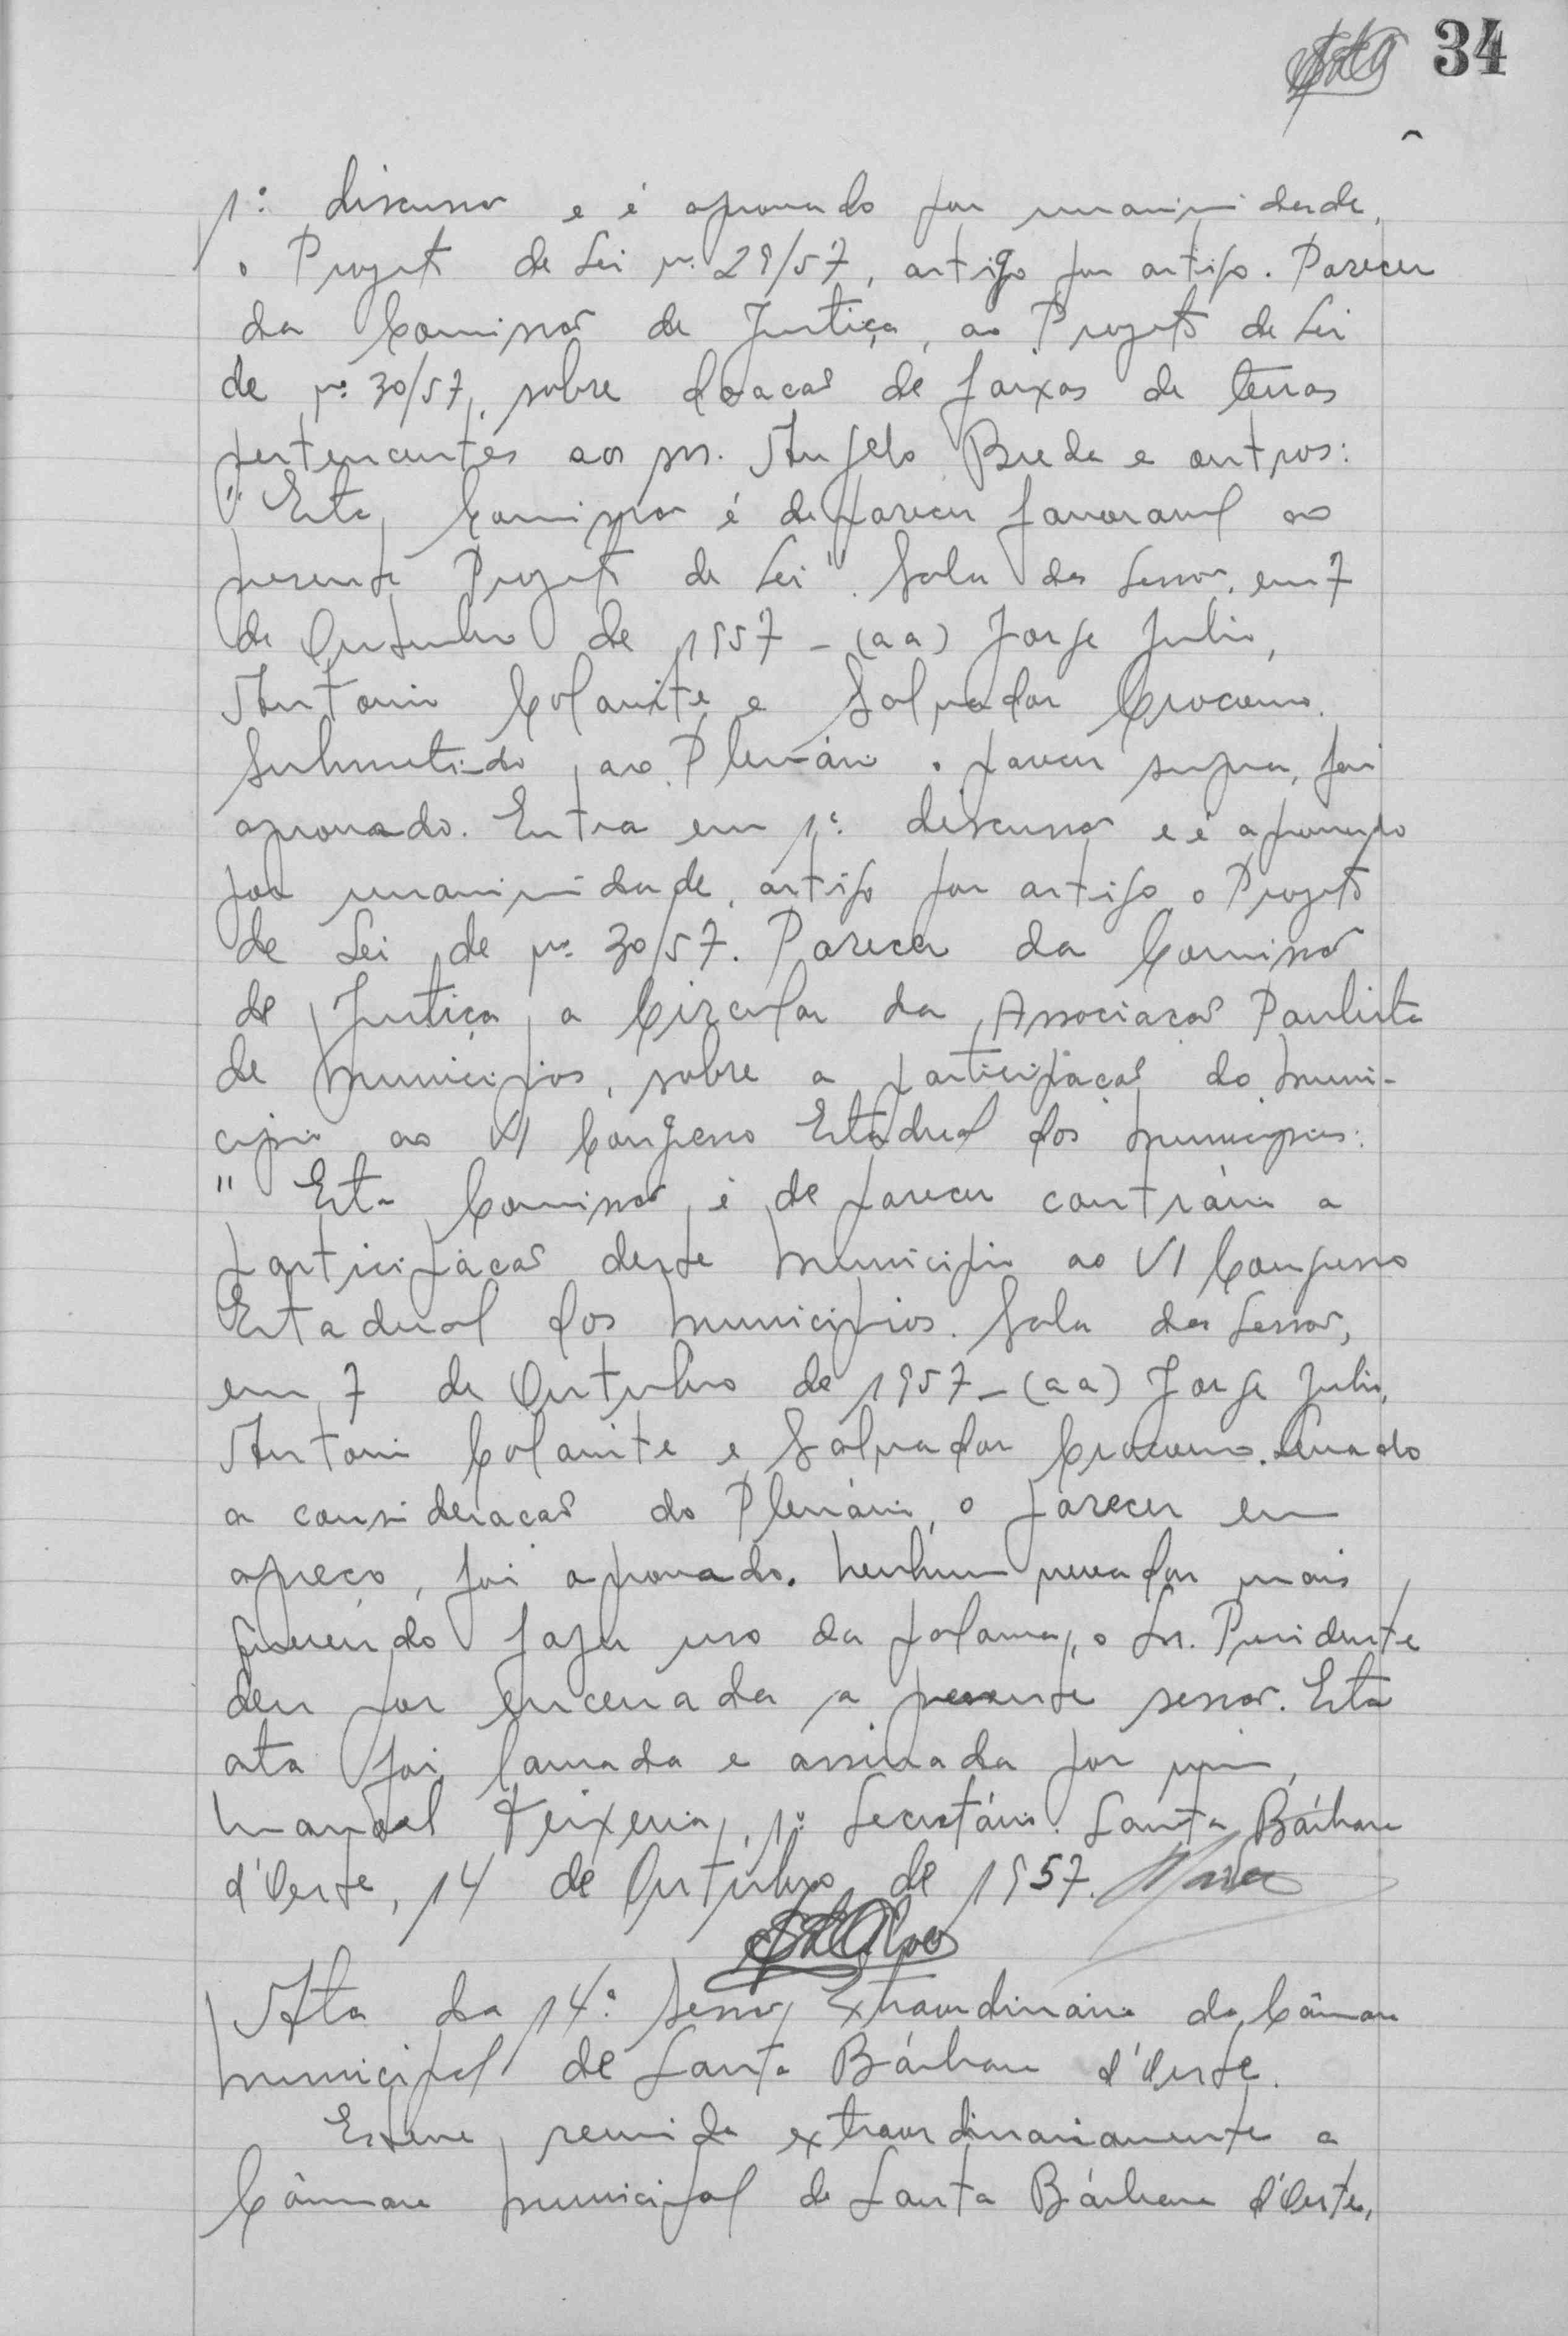 34
1ª discussão e é aprovado por unanimidade,
o Projeto de Lei nº 29/57, artigo por artigo. Parecer
da Comissão de Justiça, ao Projeto de Lei
de nº 30/57, sobre doacão de faixas de terras
pertencentes aos srs. Angelo Breda e outros:
"Esta Comissão é de parecer favoravel ao
presente Projeto de Lei". Sala das Sessões, em 7
de Outubro de 1957 - (aa) Jorge Julio,
Antonio Colamite e Salvador
Submetido ao Plenário o parecer supra, foi
aprovado. Entra em 1ª discussão e é aprovado
por unanimidade, artigo por artigo o Projeto
de Lei de nº 30/57. Parecer da Comissão
de Justiça, a Circular da Associacão Paulista
de Municipios, sobre a participação do Muni-
cipio ao VI Congresso Estadual dos Municipios:
" Esta Comissão, é de parecer contrário a
participacão deste Municipio ao VI Congresso
Estadual dos Municipios. Sala das Sessões,
em 7 de Outubro de 1957 - (aa) Jorge Julio,
Antonio Colamite e Salvador Levado
a consideracão do Plenário, o parecer em
apreço, foi aprovado. Nenhum vereador mais
querendo fazer uso da palavra, o Sr. Presidente
deu por encerrada a presente sessão. Esta
ata foi lavrada e assinada por mim,
Manoel Teixeira, 1º Secretário. Santa Bárbara
d'Oeste, 14 de Outubro de 1957.
Ata da 14ª Sessão Extraordinária da Câmara
Municipal de Santa Bárbara d'Oeste.
Esteve reunida extraordinariamente a
Câmara Municipal de Santa Bárbara d'Oeste,